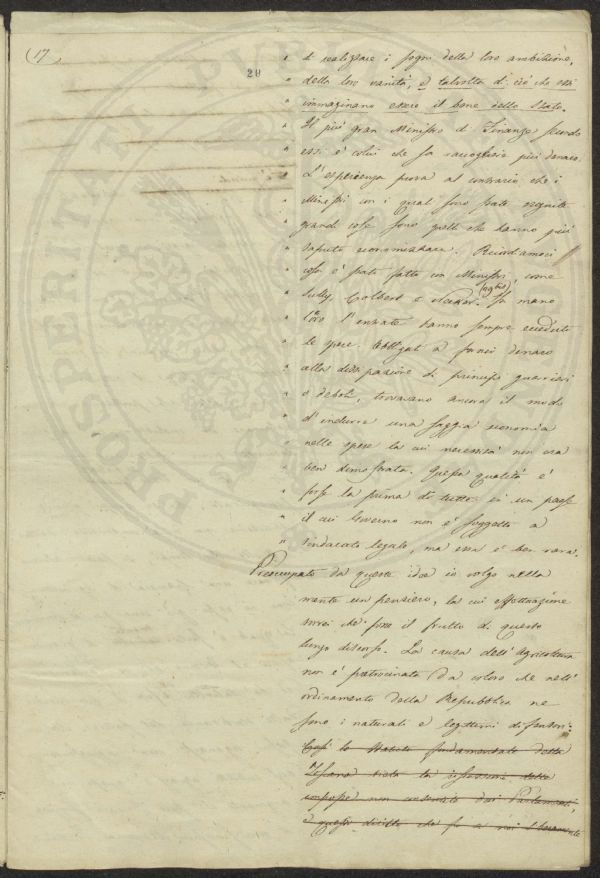 (17
28
" e realizzare i sogni della loro ambizione,
" della loro vanità, e talvolta di ciò che essi
" immaginano essere il bene dello Stato.
" Il più gran Ministro di Finanze secondo
" essi è colui che fa raccogliere più danaro.
" L'esperienza prova al contrario che i
" Ministri con i quali sono state eseguite
" grandi cose sono quelli che hanno più
" saputo economizzare. Ricordiamoci
" cosa è stato fatto con Ministri, come
" Sully, Colbert e
" loro l'entrate hanno sempre ecceduto
" le spese. Obbligati a fornir denaro
" alla dissipazione di principi guerrieri
" o deboli, trovavano ancora il modo
" d'indurre una saggia economia
" nelle spese la cui necessità non era
" ben dimostrata. Questa qualità è
" forse la prima di tutte in un paese
" il cui Governo non è soggetto a
" sindacato legale, ma essa è ben rara.
Preoccupato da queste idee io volgo nella
mente un pensiero, la cui effettuazione
vorrei che fosse il frutto di questo
lungo discorso. La causa dell'Agricoltura
non è patrocinata da coloro che nell'
ordinamento della Repubblica ne
sono i naturali e legittimi difensori.
lo Statuto fondamentale della
Toscana vieta la
imposte non consentite dai Parlamenti,
e questo diritto che fu a noi